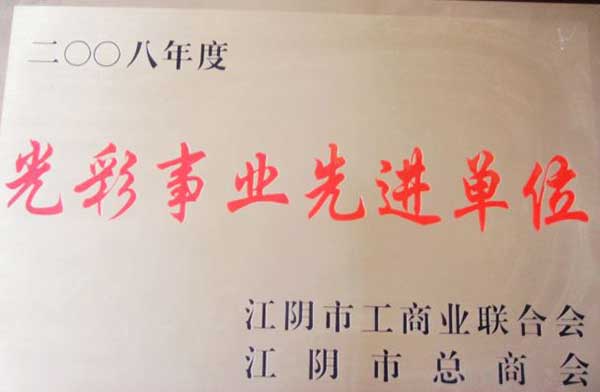 二〇〇八年度
光彩事业先进单位
江阴市工商业联合会
江阴市总商会